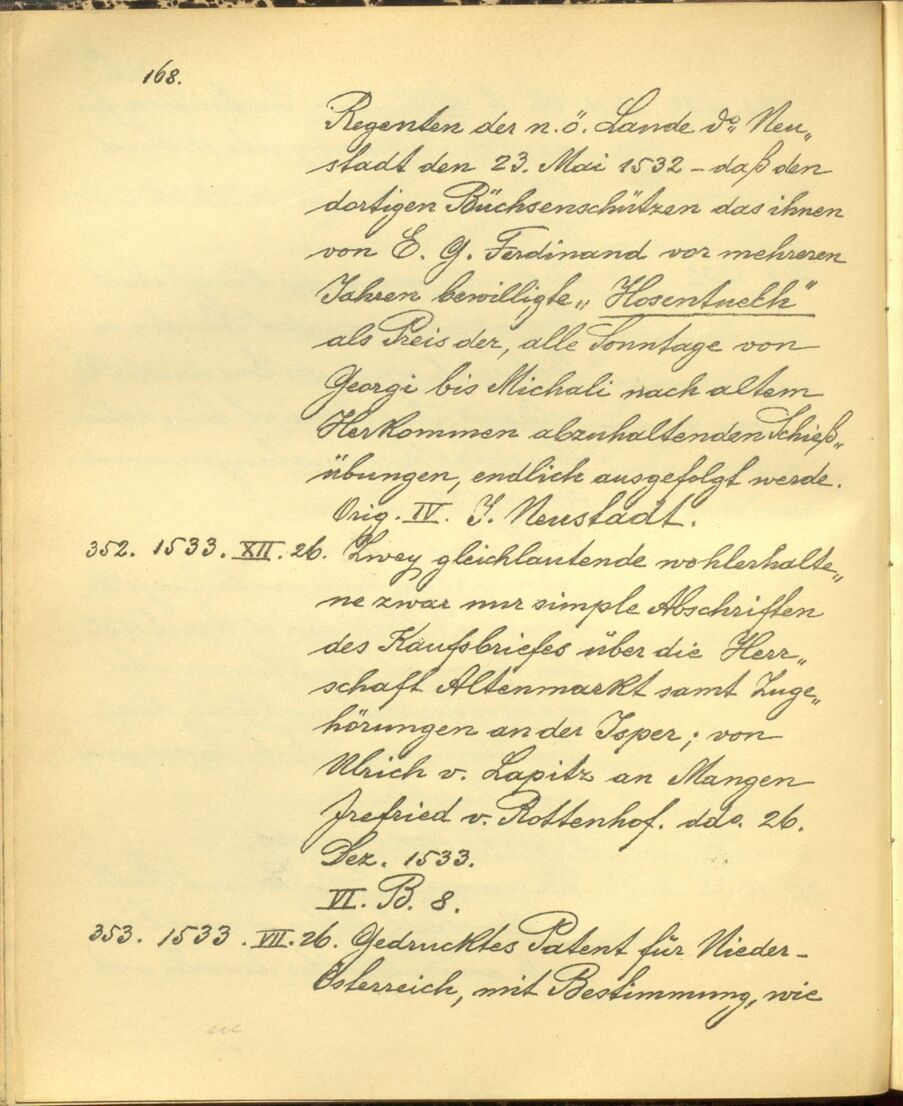 168.
Regenten der n. ö. Lande do. Neu„
stadt den 23. Mai 1532 – daß den
dortigen Büchsenschützen das ihnen
von E. G. Ferdinand vor mehreren
Jahren bewilligte „Hosentuech"
als Preis der, alle Sonntage von
Georgi bis Michali nach altem
Herkommen abzuhaltenden Schieß„
übungen, endlich ausgefolgt werde.
Orig. IV. J. Neustadt.
352. 1533. XII. 26. Zwey gleichlautende wohlerhalte„
ne zwar nur simple Abschriften
des Kaufsbriefes über die Herr„
schaft Altenmarkt samt Zuge„
hörungen an der Isper; von
Ulrich v. Lapitz an Mangen
Jrefried v. Rottenhof. ddo. 26.
Dez. 1533.
VI. B. 8.
353. 1533. VII. 26. Gedrucktes Patent für Nieder-
Österreich, mit Bestimmung, wie